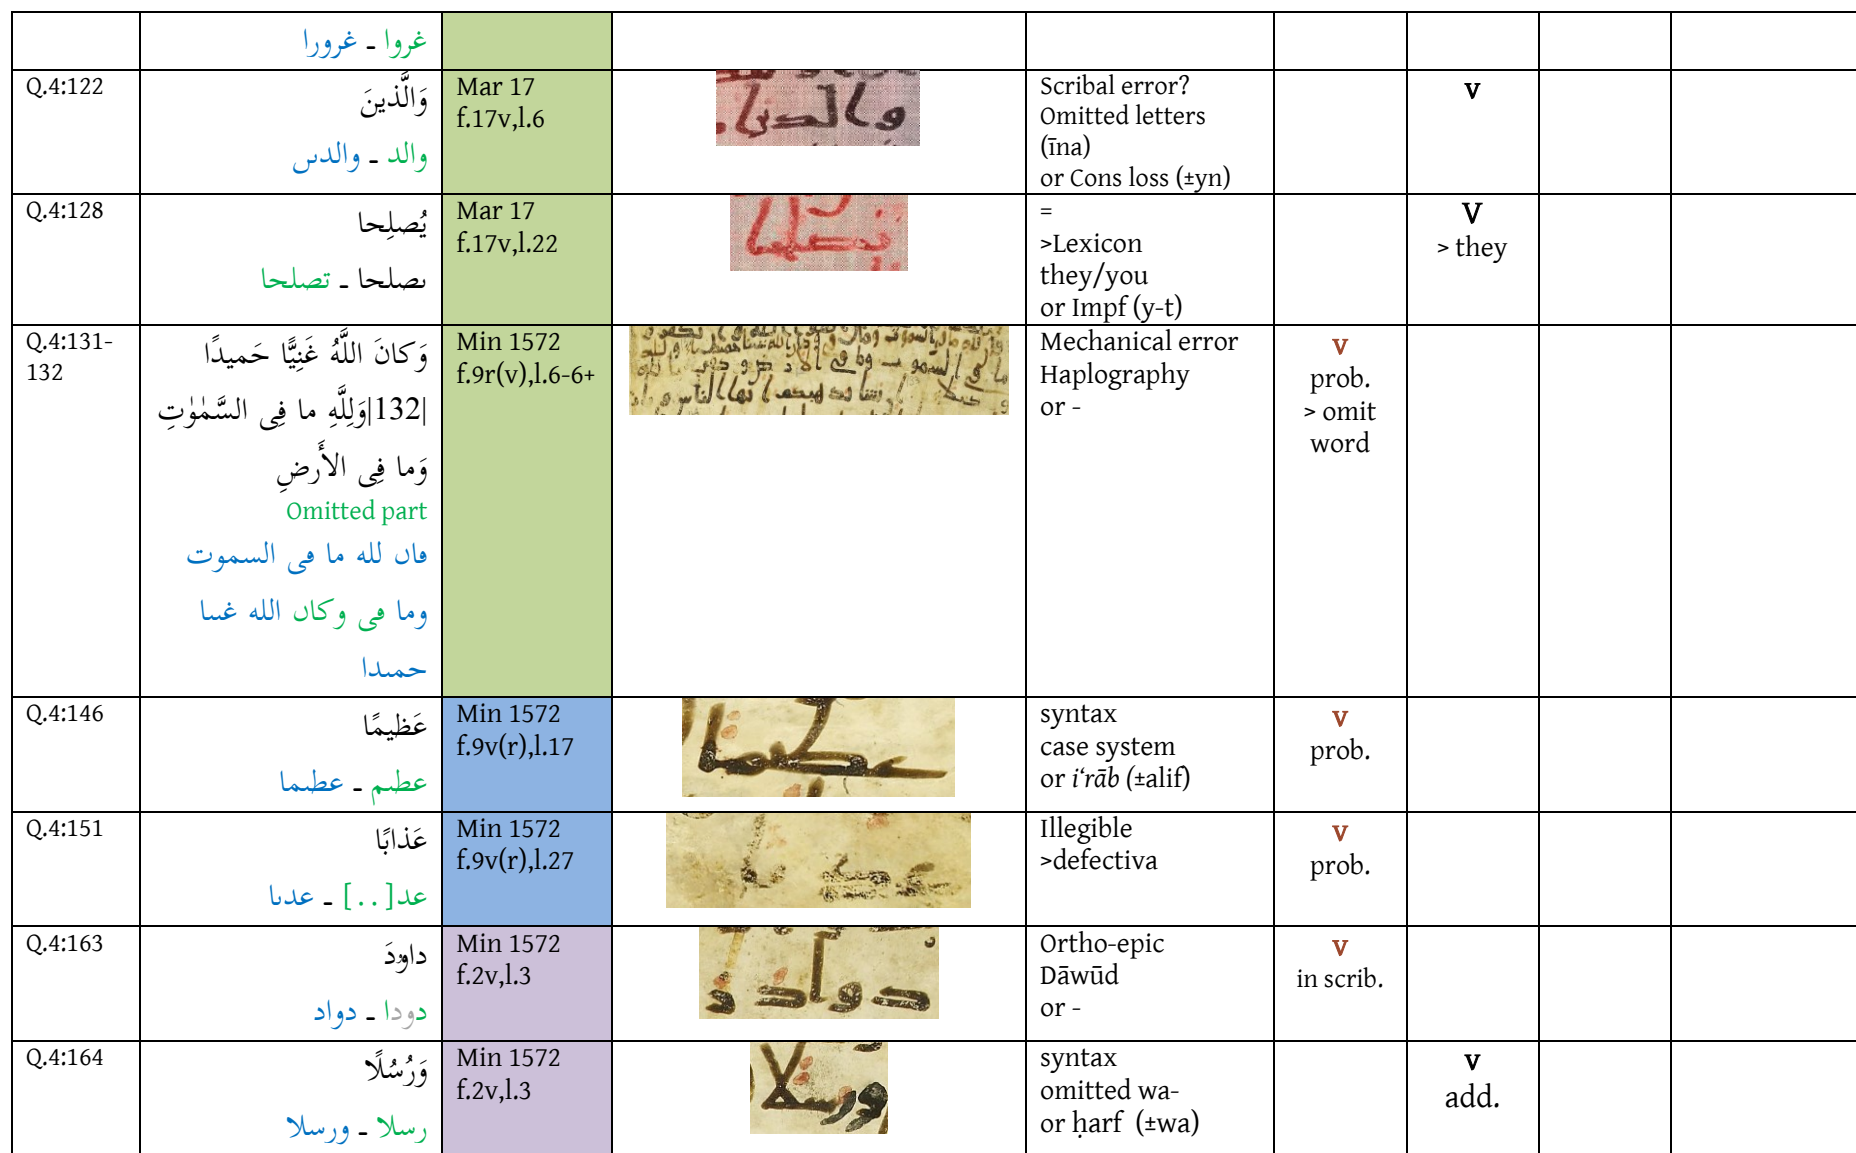 غروا ـ غرورا
Q.4:122
وَالَّذينَ
والد ـ والدٮں
Mar 17
f.17v,l.6
Scribal error?
Omitted letters
(īna)
or Cons loss (±yn)
v
Q.4:128
يُصلِحا
ٮصلحا ـ تصلحا
Mar 17
f.17v,l.22
=
>Lexicon
they/you
or Impf (y-t)
V
> they
Q.4:131-
132
وَكانَ اللَّهُ غَنِيًّا حَميدًا
|132|وَلِلَّهِ ما فِى السَّمٰوٰتِ
وَما فِى الأَرضِ
Omitted part
ڡاں لله ما ڡى السموت
وما ڡى وكاں الله غٮٮا
حمٮدا
Min 1572
f.9r(v),l.6-6+
Mechanical error
Haplography
or -
v
prob.
> omit
word
Q.4:146
عَظيمًا
عطٮم ـ عطٮما
Min 1572
f.9v(r),l.17
syntax
case system
or i‘rāb (±alif)
v
prob.
Q.4:151
عَذابًا
عد[..] ـ عدٮا
Min 1572
f.9v(r),l.27
Illegible
>defectiva
v
prob.
Q.4:163
داوۥدَ
دودا ـ دواد
Min 1572
f.2v,l.3
Ortho-epic
Dāwūd
or -
v
in scrib.
Q.4:164
وَرُسُلًا
رسلا ـ ورسلا
Min 1572
f.2v,l.3
syntax
omitted wa-
or ḥarf (±wa)
v
add.